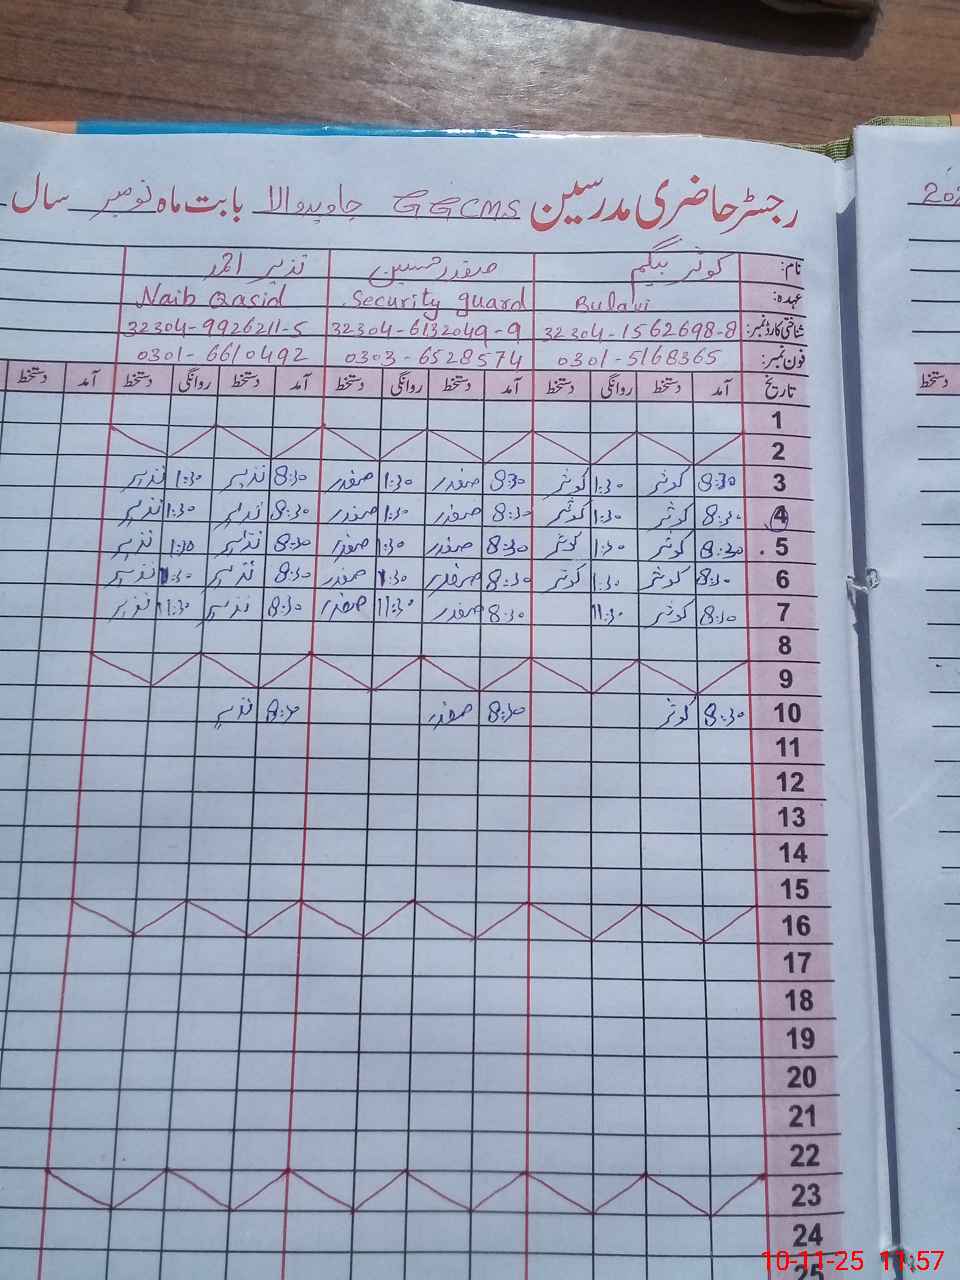 رجسٹر حاضری مدرسین GGCMS جاویدوالا بابت ماہ نومبر سال
نام: کوثر بیگم صفدر حسین نذیر احمد
عہدہ: Bulavi Security guard Naib Qasid
شناختی کارڈ نمبر: 32304-1562698-8 32304-6132049-9 32304-9926211-5
فون نمبر: 0301-5168365 0303-6528574 0301-6610492
تاریخ آمد دستخط روانگی دستخط آمد دستخط روانگی دستخط آمد دستخط روانگی دستخط آمد دستخط
1
2
3 8:30 کوثر 1:30 کوثر 8:30 صفدر 1:30 صفدر 8:30 نذیر 1:30 نذیر
4 8:30 کوثر 1:30 کوثر 8:30 صفدر 1:30 صفدر 8:30 نذیر 1:30 نذیر
5 8:30 کوثر 1:30 کوثر 8:30 صفدر 1:30 صفدر 8:30 نذیر 1:30 نذیر
6 8:30 کوثر 1:30 کوثر 8:30 صفدر 1:30 صفدر 8:30 نذیر 1:30 نذیر
7 8:30 کوثر 11:30 8:30 صفدر 11:30 صفدر 8:30 نذیر 11:30 نذیر
8
9
10 8:30 کوثر 8:30 صفدر 8:30 نذیر
11
12
13
14
15
16
17
18
19
20
21
22
23
24
25
دستخط
10-11-25 11:57